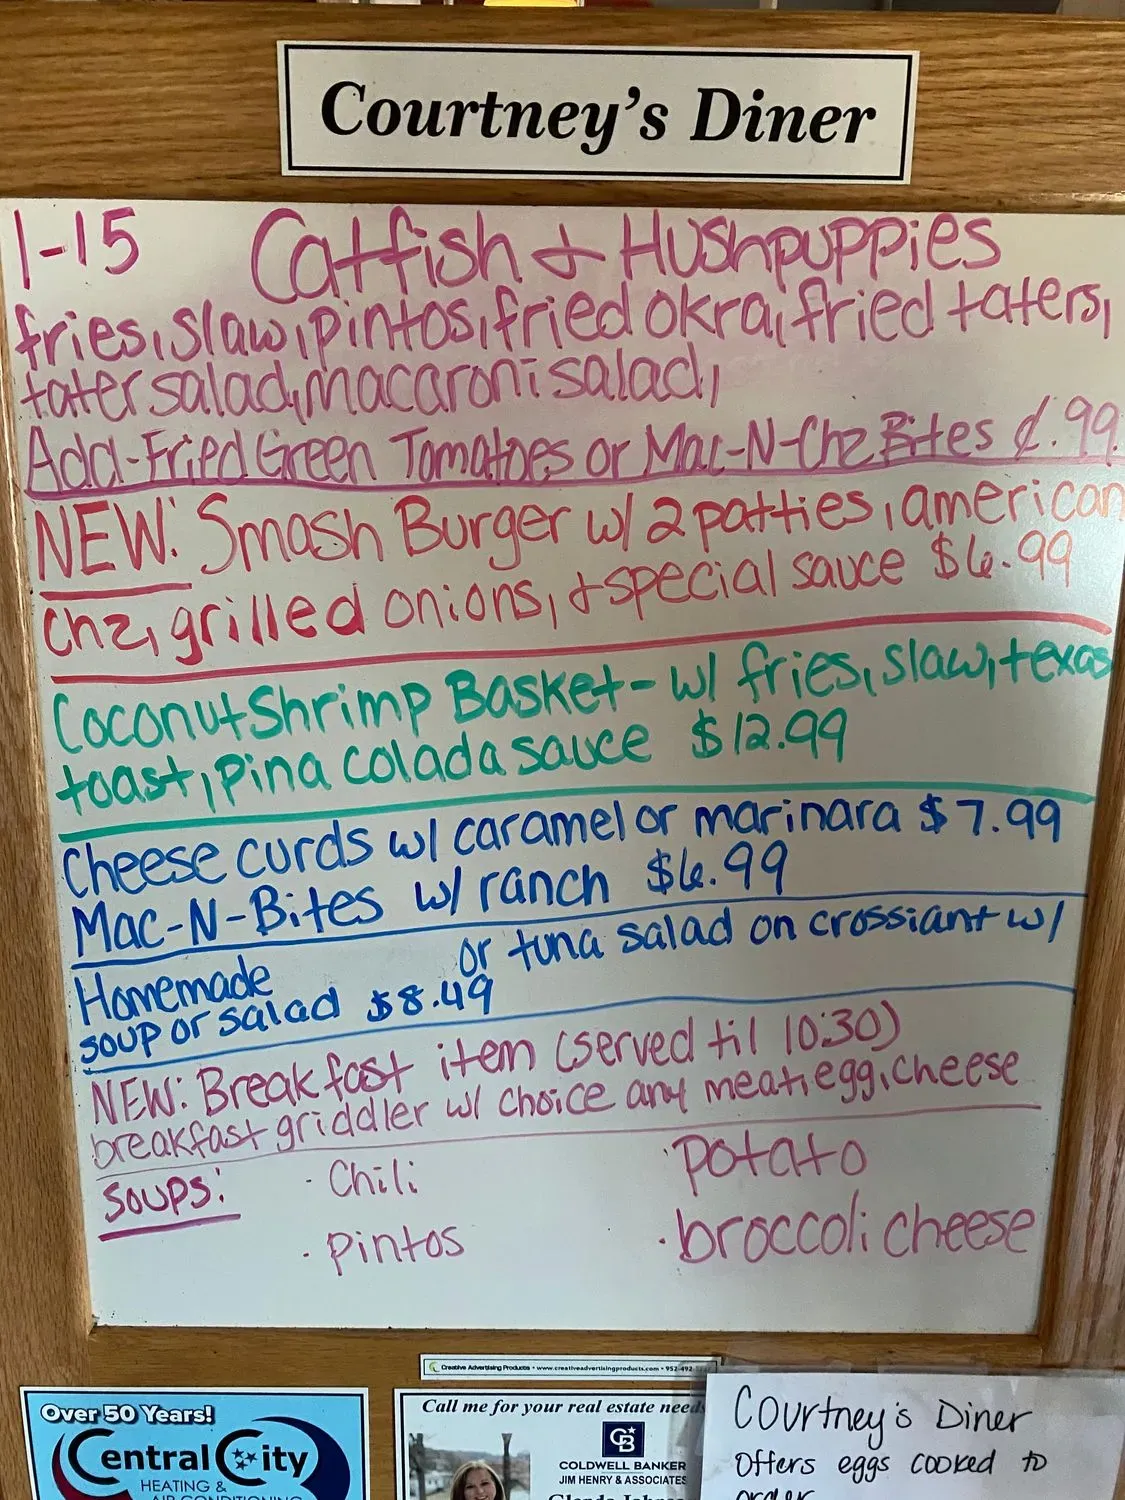 Courtney's Diner
1-15 Catfish & Hushpuppies
fries, slaw, pintos, fried okra, fried taters,
tater salad, macaroni salad,
Add-Fried Green Tomatoes or Mac-N-Chz Bites ¢.99
NEW: Smash Burger w/ 2 patties, american
chz, grilled onions, & special sauce $6.99
Coconut Shrimp Basket- w/ fries, slaw, texas
toast, pina colada sauce $12.99
Cheese curds w/ caramel or marinara $7.99
Mac-N-Bites w/ ranch $6.99
Homemade or tuna salad on crossiant w/
soup or salad $8.49
NEW: Breakfast item (served til 10:30)
breakfast griddler w/ choice any meat, egg, cheese
Soups: · Chili · potato
· pintos · broccoli cheese
Creative Advertising Products • www.creativeadvertisingproducts.com • 952-492
Over 50 Years!
Central City
HEATING &
AIR CONDITIONING
Call me for your real estate needs
CB
COLDWELL BANKER
JIM HENRY & ASSOCIATES
Courtney's Diner
Offers eggs cooked to
order